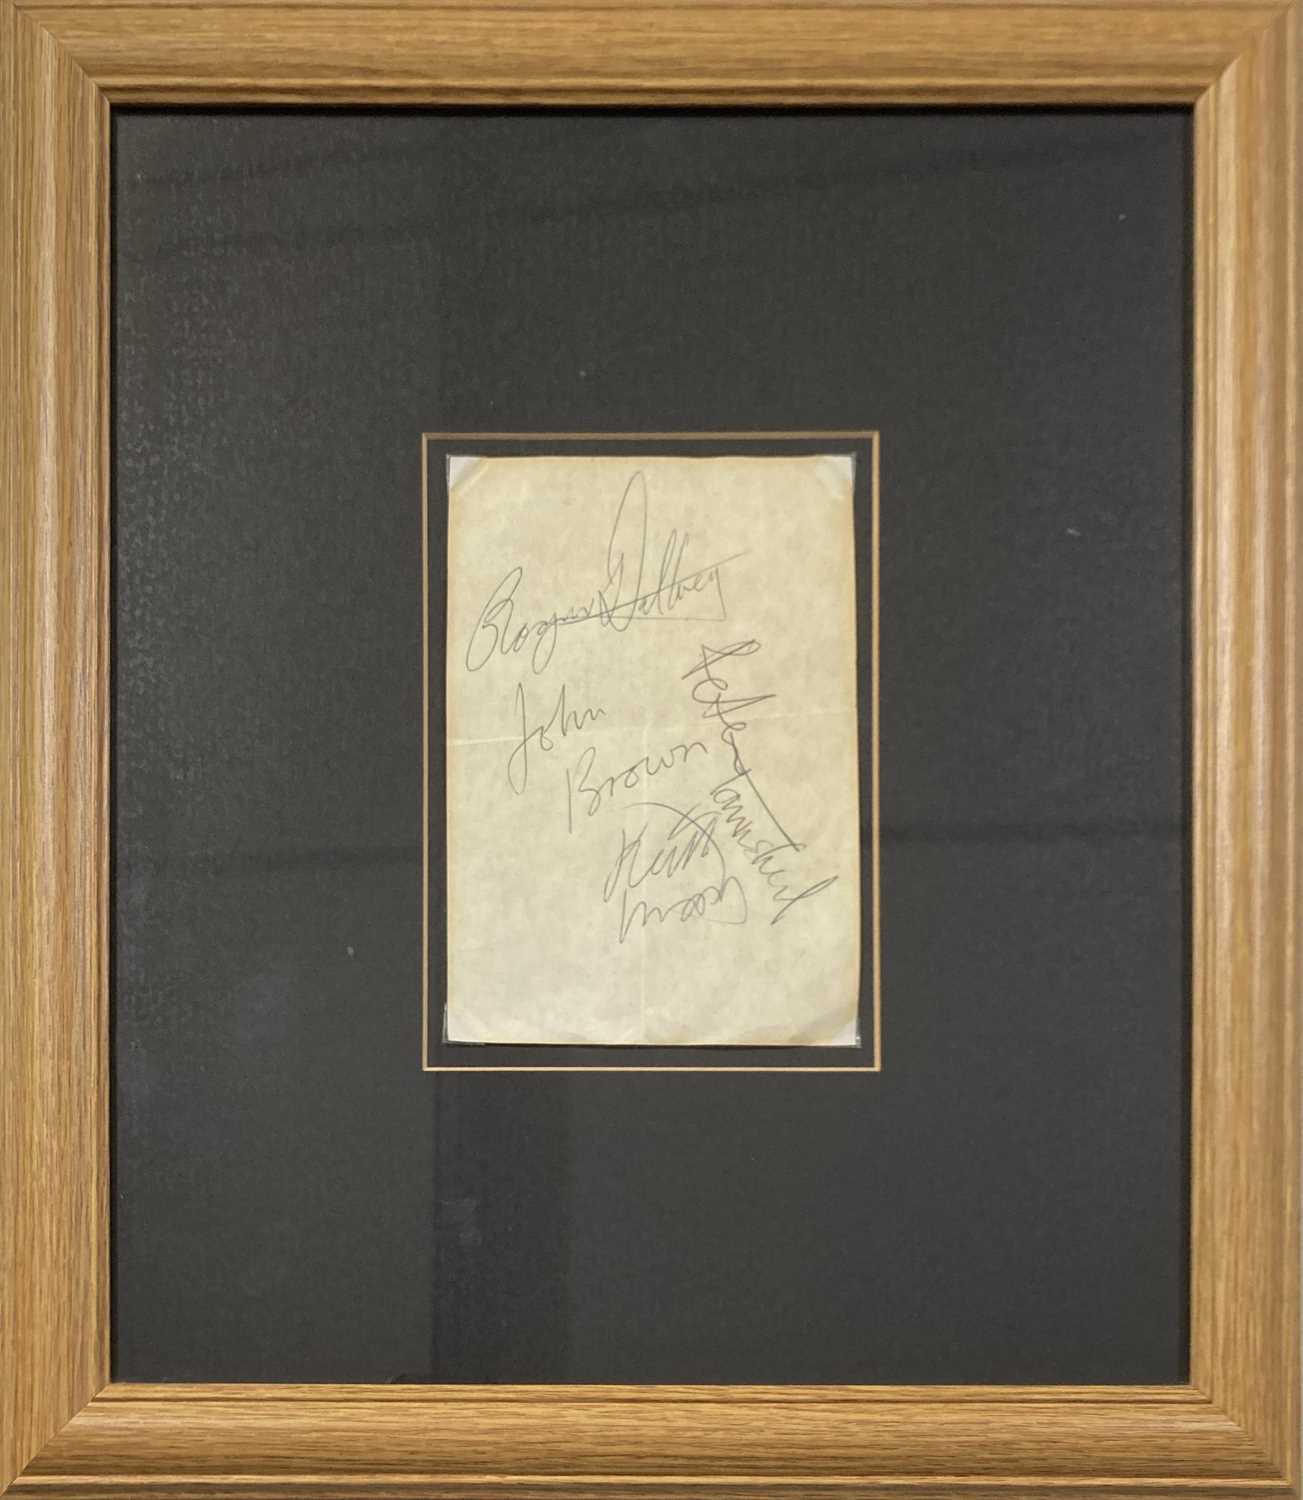 Roger Daltrey
John
Brown
Peter Townshend
Keith
Moon